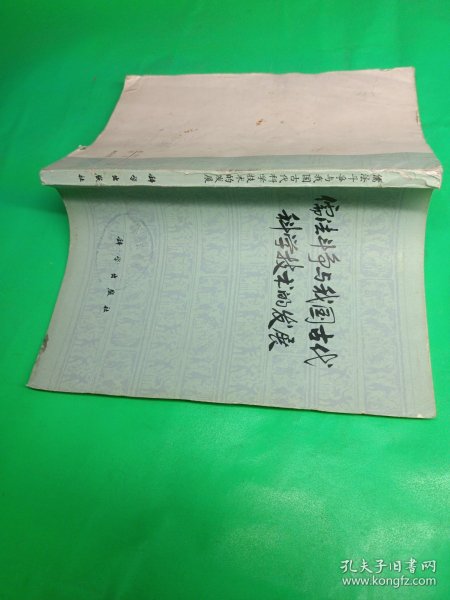 儒法斗争与我国古代
科学技术的发展
科学出版社
儒法斗争与我国古代科学技术的发展
科学出版社
孔夫子旧书网
www.kongfz.com